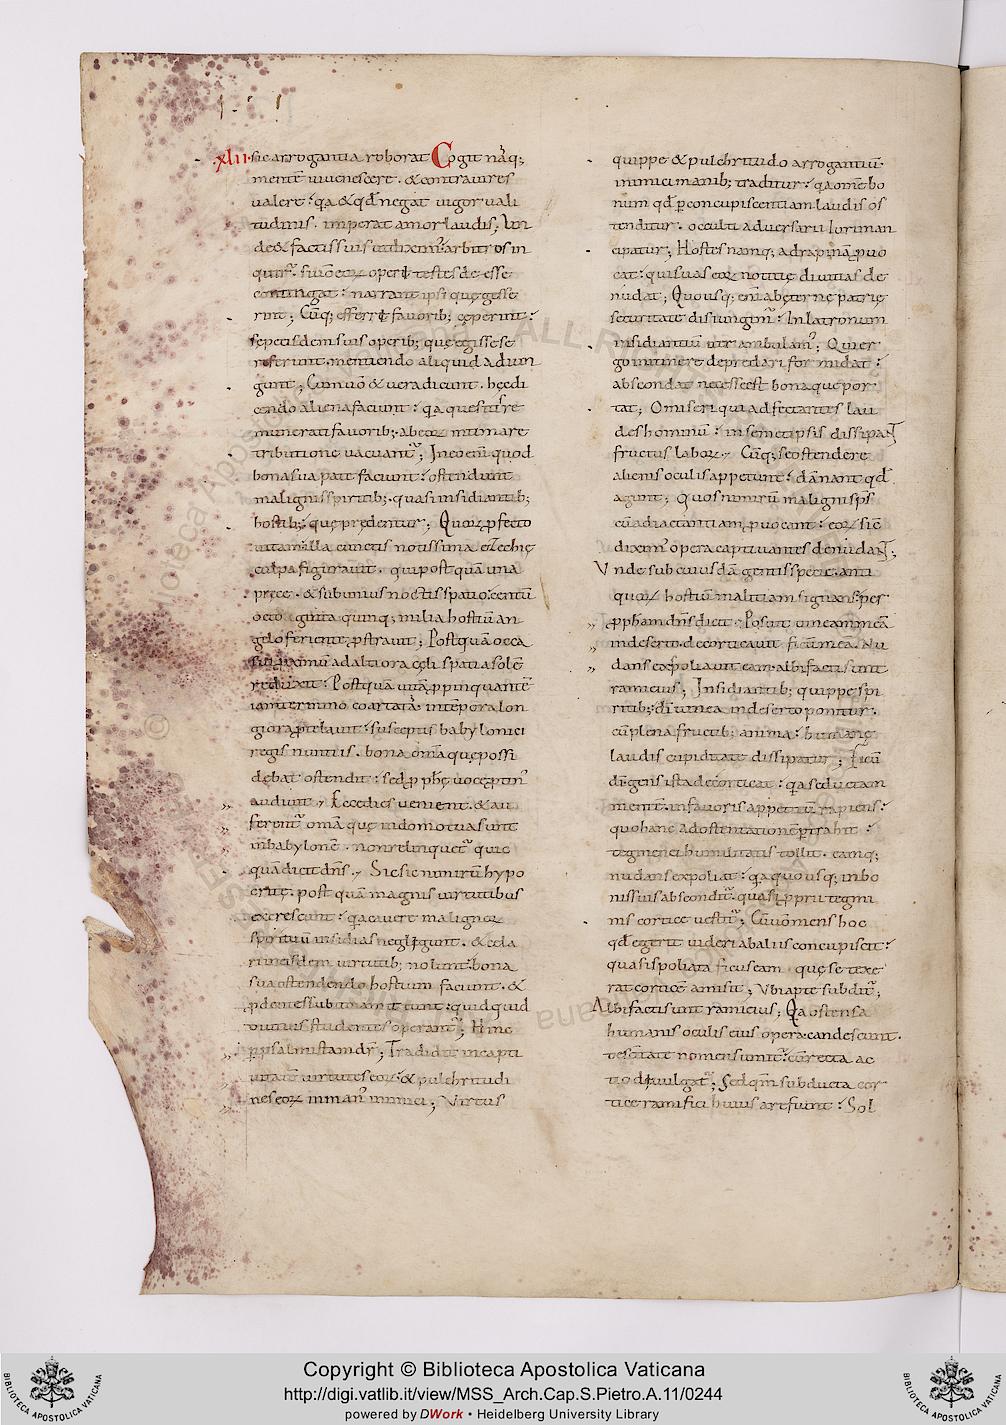 ·xlii· sic arrogantia roborat Cogit nāq;
mentē uiuenescere . & contrauires
valere : qa & qd̄ negat uigor uali
tudinis . imperat amor laudis ; Un
quirit᷑ . suūm eoꝝ operū testes de esse
contingat : narrant ipsi quę gesse
rint ; Cūq; efferre fauorib; cęperint :
sepe eisdem suis operib; que egisse se
referunt . mentiendo aliquid adiun
gunt ; Cum uō & vera dicunt . hęc di
cendo aliena faciunt : qa quesitis re
munerati fauorib; . ab eoꝝ intima re
tributione vacuant᷑ ; In eo eni quod
bona sua patefaciunt : ostendunt
malignis spiritib; . quasi insidiantib;
hostib; : quę prędentur ; Quoꝝ ꝓfecto
uitam illa cunctis notissima ezechię
culpa figurauit . qui post quā una
prece . & sub unius noctis spatio : centū
octoginta quinq; milia hostiū an
gelo feriente ꝓstrauit ; Postquā occa
sui ꝓximū ad altiora cęli spatia solē
reduxit : Postquā uitā ꝓpinquante
iam termino coartatā . in tēpora lon
giora ꝓtelauit : susceptis babylonici
regis nuntiis . bona omīa quę possi
dębat ostendit : sed ꝓphę uocę ptin᷑
audiuit ; Ecce dies uenient . & au
ferent᷑ omīa quę in domo tua sunt
in babylonē . non relinquet᷑ quic
quā dicit dn̄s ; Sic sic nimirū hypo
critę . post quā magnis uirtutibus
excrescunt : qa cauere malignoꝝ
spirituū insidias neglegunt . & cela
ri in eisdem uirtutib; nolunt : bona
sua ostendendo hostium faciunt . &
pdentes subito amittunt : quidquid
diutius studentes operant᷑ ; Hinc
p psalmistam dr̄ ; Tradidit in capti
uitatē uirtutes eoꝝ : & pulchritudi
nes eoꝝ in man᷑ inimici ; Virtus
quippe & pulchritudo arrogantiū .
inimici manib; traditur : qa ome bo
num qd̄ p concupiscentiam laudis os
tenditur . occulti aduersarii iuri man
cipatur ; Hostes namq; ad rapinā ꝓuo
cat : qui suas eoꝝ notitię diuitias de
nudat ; Quousq; eni ab ęternę patrię
securitate disiungim᷑ : In latronum
insidiantiū iter ambulam᷑ ; Qui er
go in itinere depredari formidat :
abscondat necesse est bona que por
tat ; O miseri qui adfectantes lau
des hominū : in semetipsis dissipant
fructus laboꝝ ; Cūq; se ostendere
alienis oculis appetunt : dānant qd̄
agunt ; Quos nimirū maligni sps̄
cū ad iactantiam ꝓuocant : eoꝝ sic̄
dixim᷑ opera captiuantes denudant ;
Vnde sub cuiusdā gentis specie . anti
quoꝝ hostiū malitiam signans : per
ꝓpham dn̄s dicit ; Posuit uineam meā
in desertū . decorticauit ficū meā . Nu
dans expoliauit eam . albi facti sunt
rami eius ; Insidiantib; quippe spi
ritib; : dī uinea in deserto ponitur .
cū plena fructib; anima : humanę
laudis cupiditate dissipatur ; Ficū
dī gens ista decorticat : qa seductam
mentē . in fauoris appetitū rapiens :
quo hanc ad ostentationē ptrahit :
tegmen ei humilitatis tollit . eamq;
nudans expoliat : qa quousq; in bo
nis suis abscondit᷑ . quasi ꝓprii tegmi
nis cortice uestit᷑ ; Cū uō mens hoc
qd̄ egerit uideri ab aliis concupiscit :
quasi spoliata ficus eam quę se texe
rat corticē amisit ; Vbi apte subdit᷑ ;
Albi facti sunt rami eius ; Qa ostensa
humanis oculis eius opera . candescunt .
tio diuulgat᷑ ; Sed qm̄ subducta cor
tice rami fici huius arefiunt : Sol
Copyright © Biblioteca Apostolica Vaticana
http://digi.vatlib.it/view/MSS_Arch.Cap.S.Pietro.A.11/0244
powered by DWork • Heidelberg University Library
BIBLIOTECA APOSTOLICA VATICANA
BIBLIOTECA APOSTOLICA VATICANA